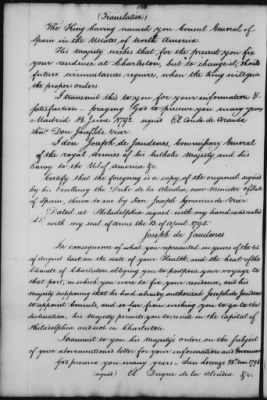 (Translation)
The King having named you Consul General of
Spain in the United States of North America.
His majesty wishes that for the present you fix
your residence at Charleston, but to change it, should
future circumstances require, when the King will give
the proper orders
I transmit this to you for your information &
satisfaction – praying God to preserve you many years
Madrid 14 June 1792. signed El Conde de Aranda
I don Joseph de Jaudenes, Commissary General
of the royal Armies of his Catholic Majesty and his
to the U.S. of America &c.
Certify that the foregoing is a copy of the original signed
by his Excellency the Duke de la Alcudia, now Minister of State
of Spain, shewn to me by Don Joseph
Dated at Philadelphia signed with my hand and sealed
LS with my seal of arms the 13 of April 1795.
Joseph de Jaudenes
In consequence of what you represented in yours of the
of August last on the state of your Health, and the heat of the
climate of Charleston obliging you to postpone your voyage to
that port, in which you were to fix your residence, and his
majesty supposing that he had already authorized Joseph de Jaudenes
to appoint Consuls, and so far from wishing you to go to that
destination; his Majesty permits you to reside in the Capital of
Philadelphia and not in Charleston.
I transmit to you his Majesty's orders on the subject
of your abovementioned letter for your information and
God preserve you many years – San Lorenzo
signed El Duque de la Alcudia &c.